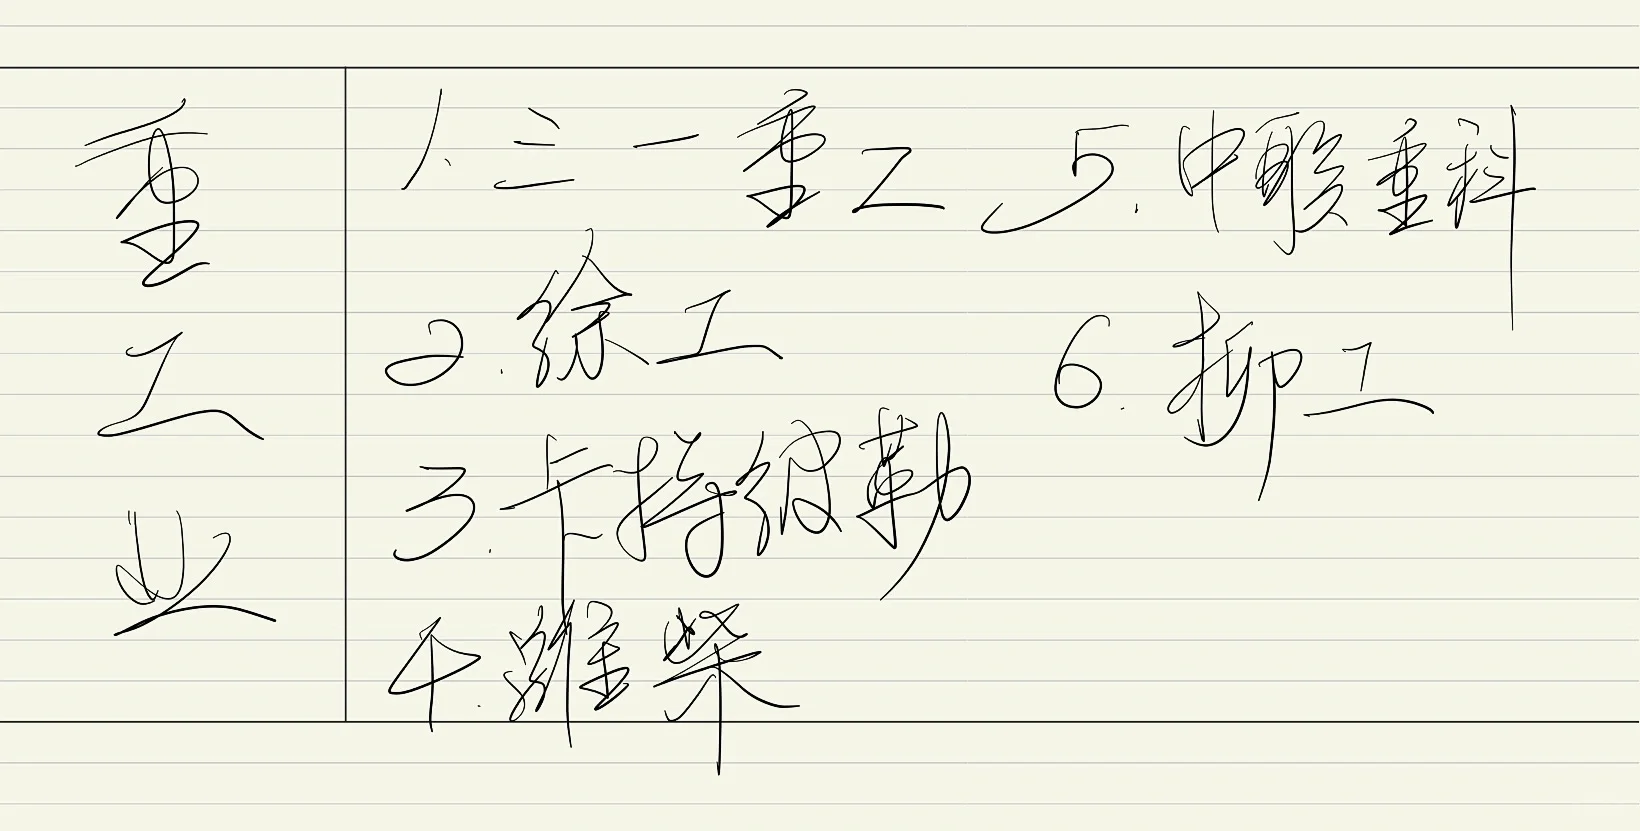 重工业
1. 三一重工
2. 徐工
3. 卡特彼勒
4. 潍柴
5. 中联重科
6. 柳工